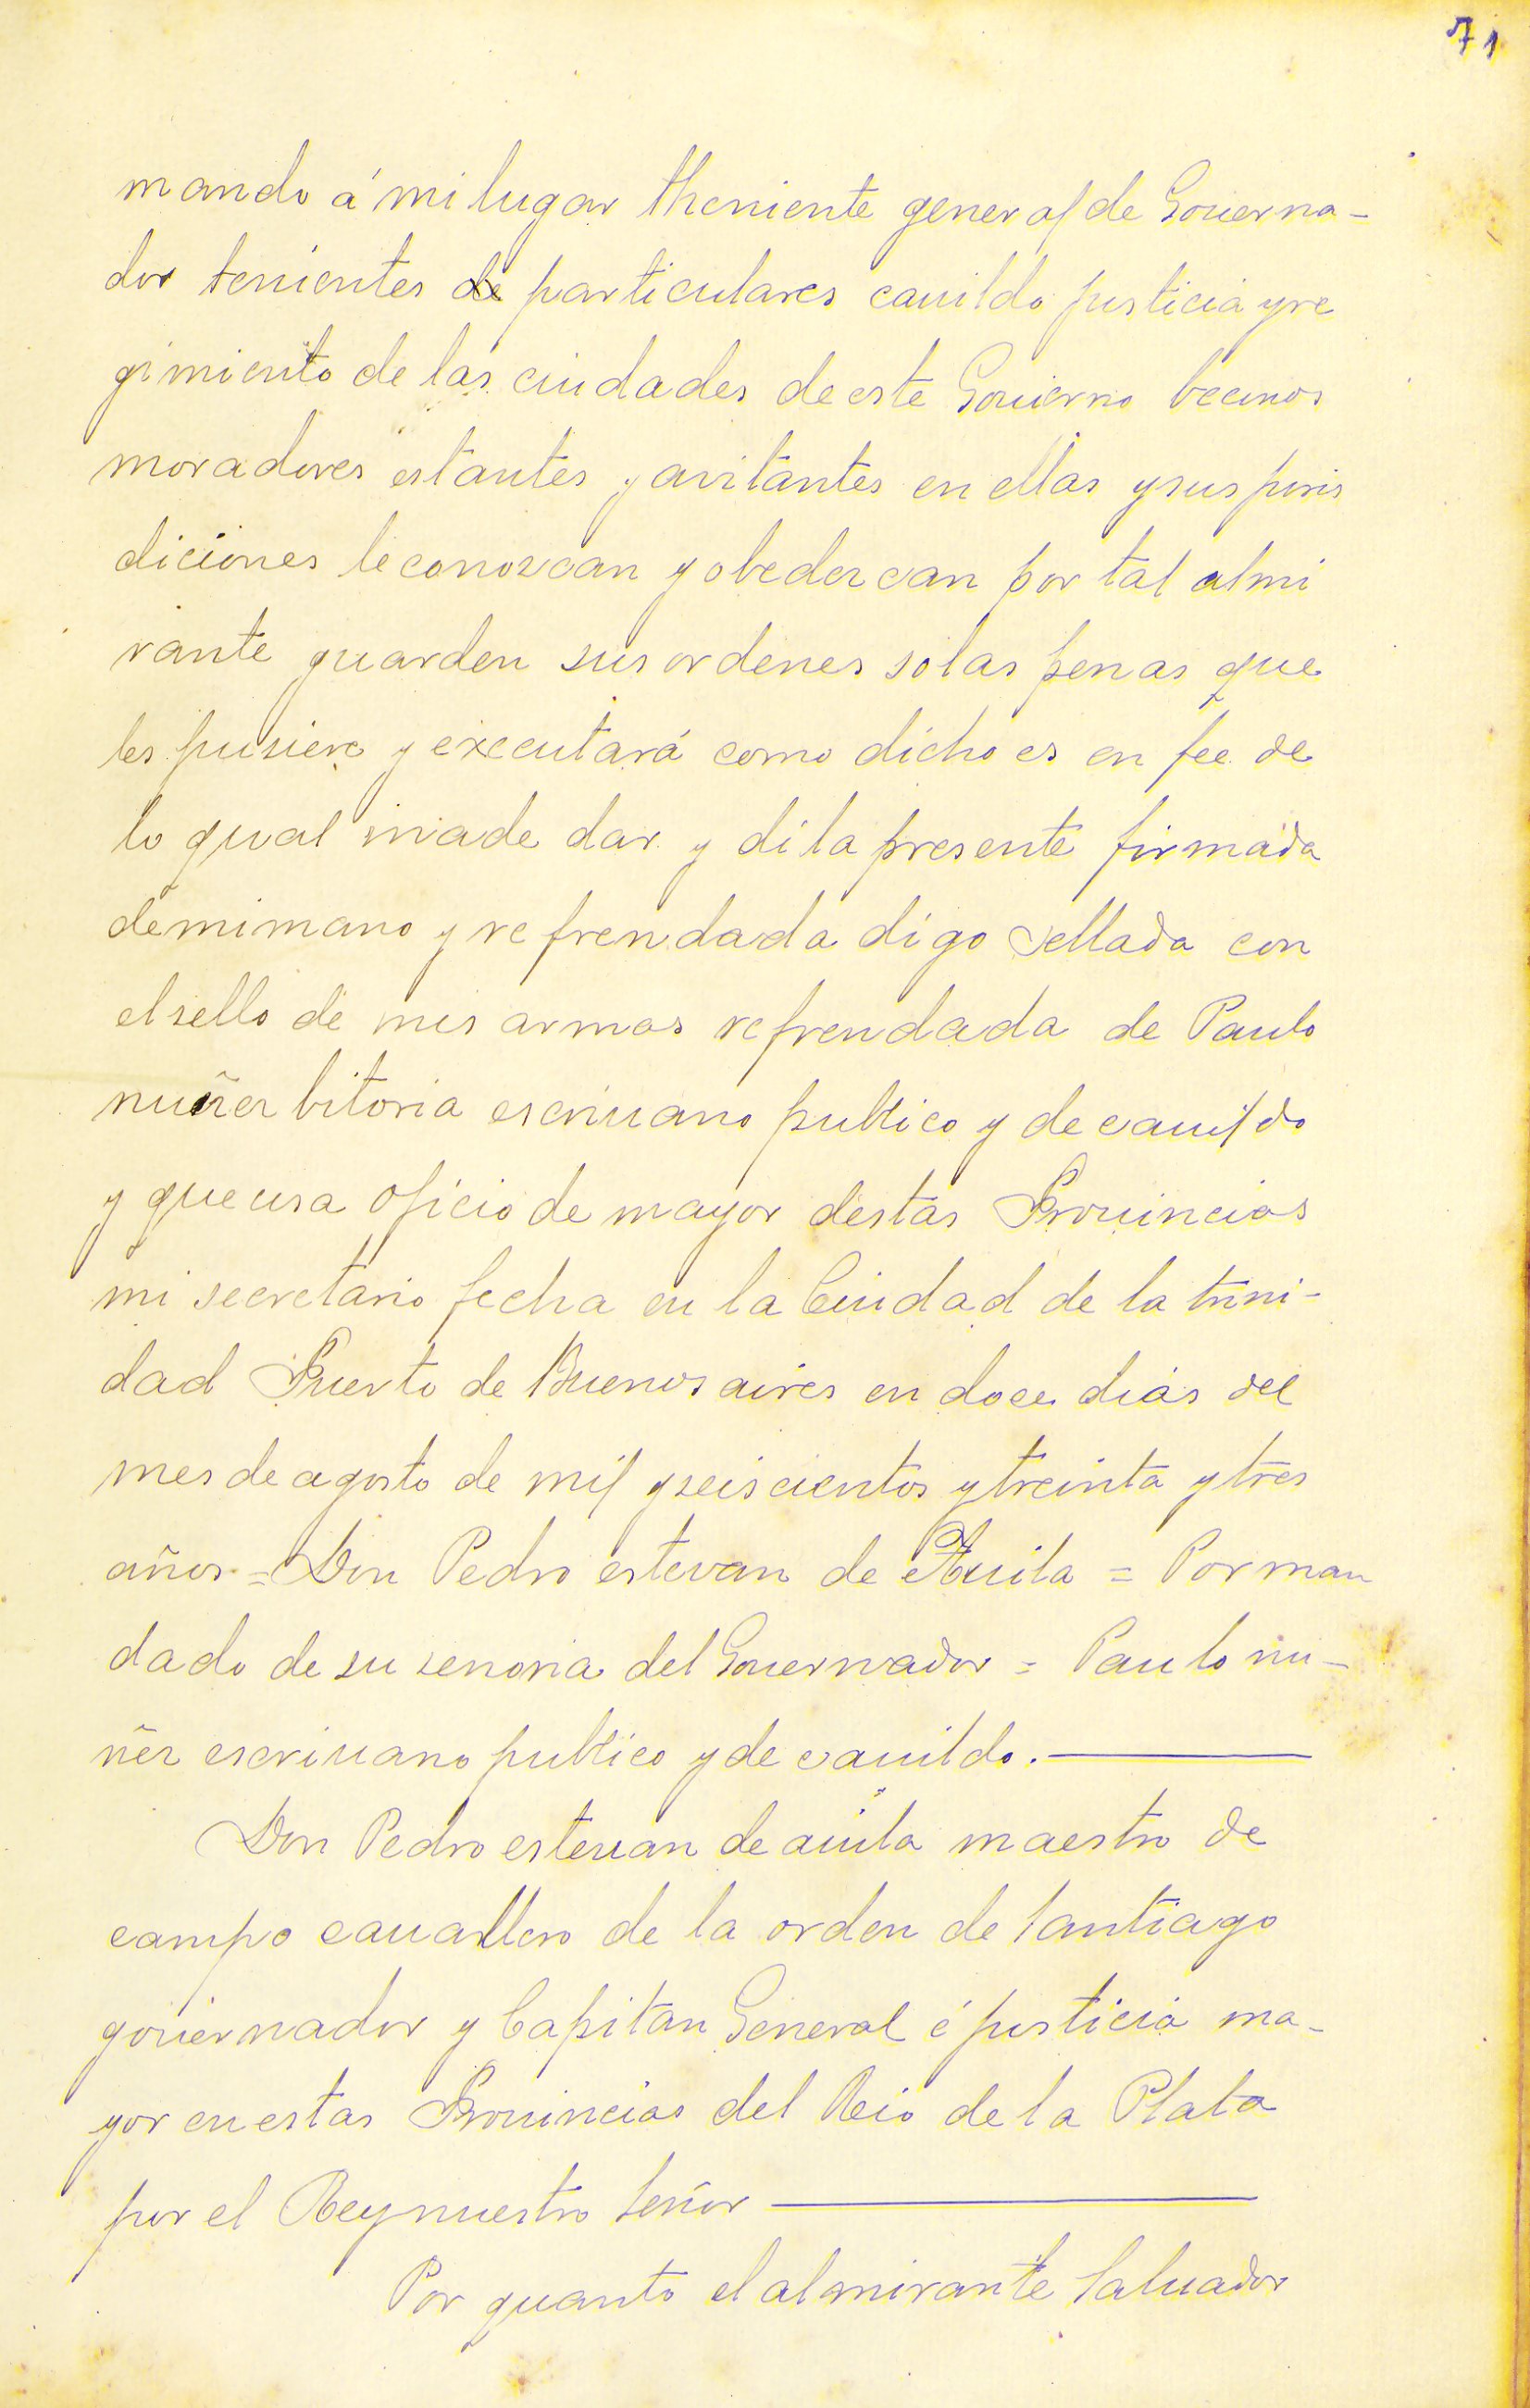 71
mando á mi lugar theniente general de Gouerna-
dor tenientes de particulares cauildo justicia y re
gimiento de las ciudades de este Gouierno becinos
moradores estantes y avitantes en ellas y sus juris
diciones le conozcan y obedezcan por tal almi
rante guarden sus ordenes so las penas que
les pusiere y executará como dicho es en fee de
lo qual made dar y di la presente firmada
de mi mano y refrendada digo sellada con
el sello de mis armas refrendada de Paulo
nuñez bitoria escriuano publico y de cauildo
y que usa oficio de mayor destas Prouincias
mi secretario fecha en la Ciudad de la trini-
dad Puerto de Buenos aires en doce dias del
mes de agosto de mil y seiscientos y treinta y tres
años = Don Pedro estevan de Auila = Por man
dado de su senoria del Gouernador = Paulo nu-
ñez escriuano publico y de cauildo.
Don Pedro esteuan de auila maestro de
campo cauallero de la orden de Santiago
gouiernador y Capitan General é justicia ma-
yor en estas Prouincias del Rio de la Plata
por el Rey nuestro Señor
Por quanto el almirante Saluador